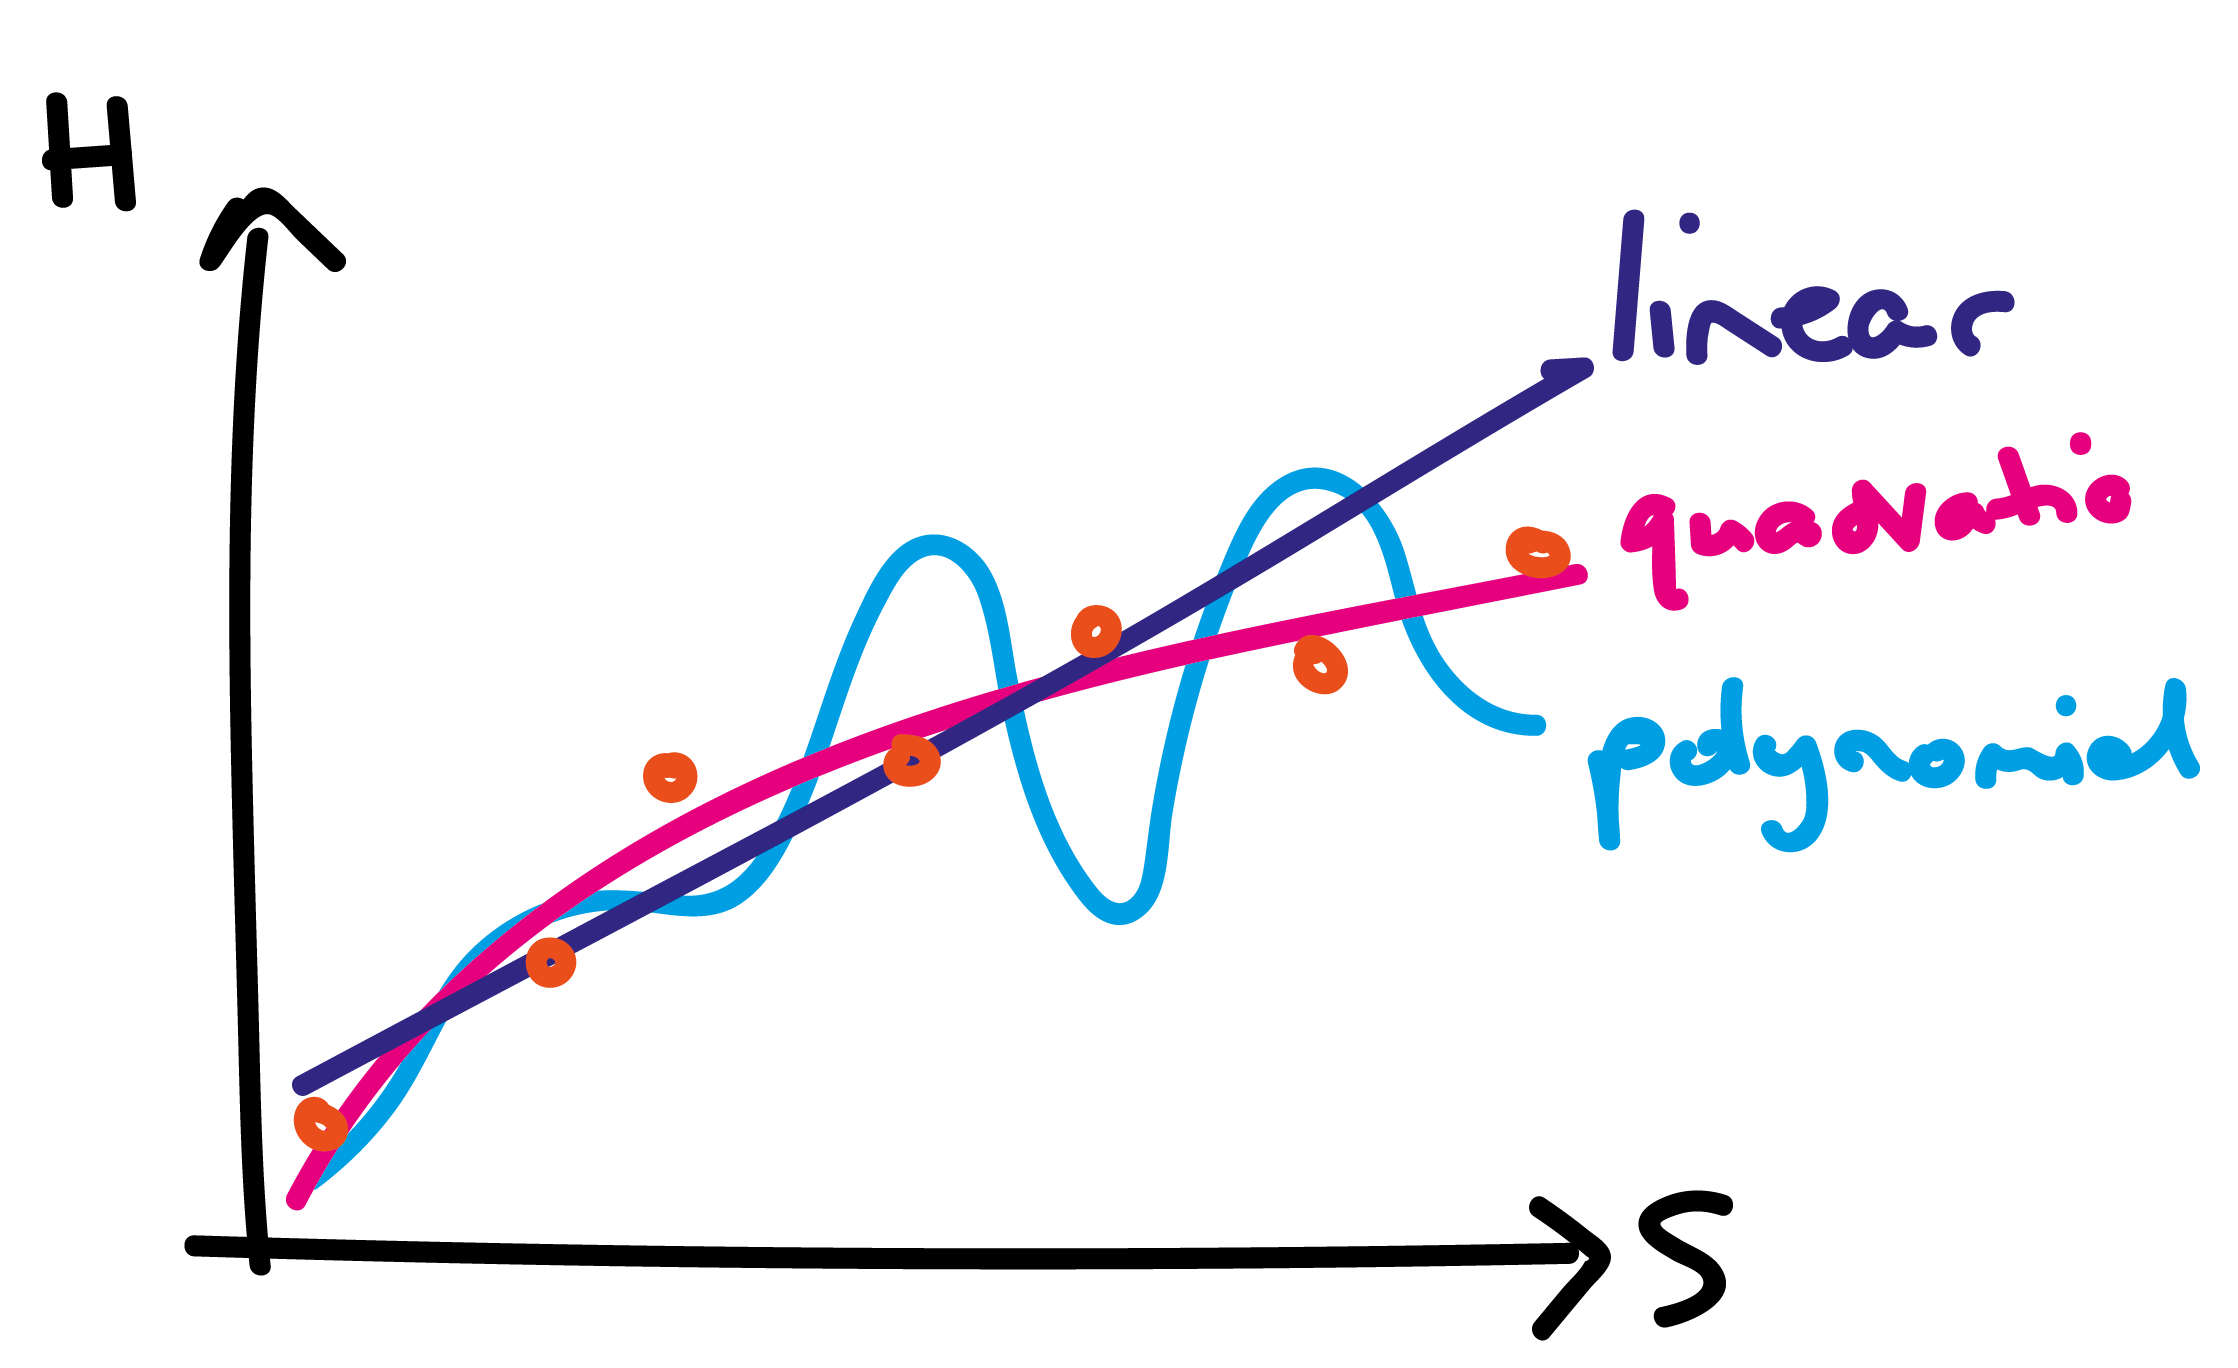 H
linear
quadratic
polynomial
S